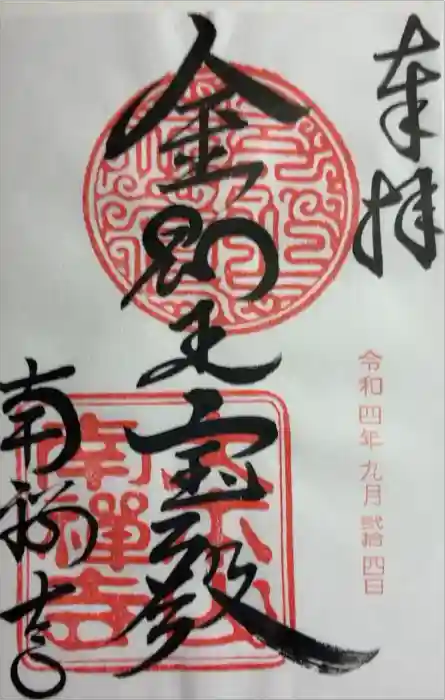 奉拝
令和四年九月弐拾四日
金剛王宝殿
南禅寺
南禅寺